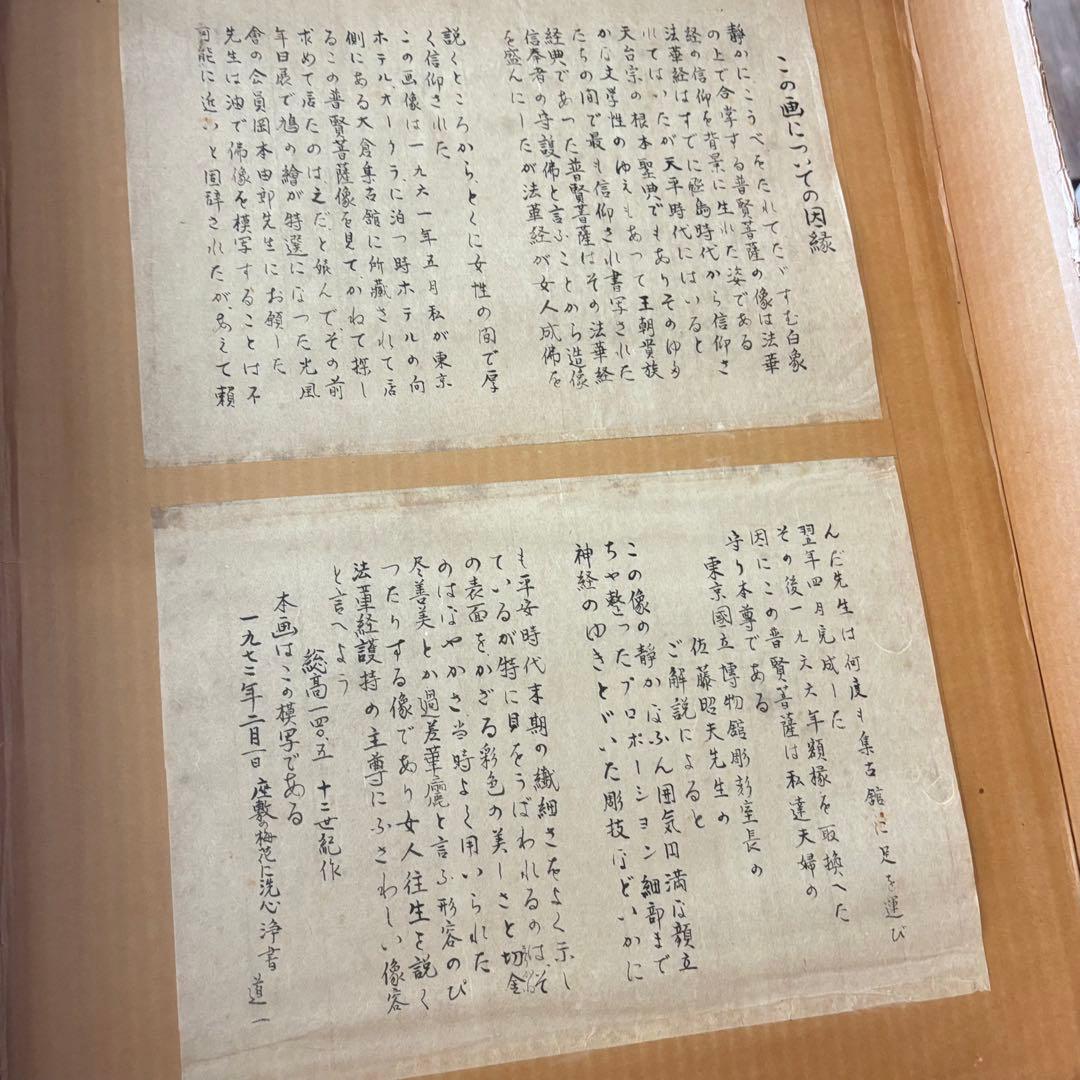 この画についての因縁
静かにこうべをたれてたゞずむ白象
の上で合掌する普賢菩薩の像は法華
経の信仰を背景に生れた姿である
法華経はすでに飛鳥時代から信仰さ
れてはいたが天平時代にはいると
天台宗の根本聖典でもありそのゆた
かな文学性のゆえもあって王朝貴族
たちの間で最も信仰され書写された
経典であった普賢菩薩はその法華経
信奉者の守護佛と言ふことから造像
を盛んにしたが法華経が女人成佛を
説くところからとくに女性の間で厚
く信仰された
この画像は一九六一年五月私が東京
ホテル、オークラに泊つ時ホテルの向
側にある大倉集古館に所藏されて居
るこの普賢菩薩像を見て、かねて探し
求めて居たのは之だと娯んで、その前
年日展で鳩の繪が特選になった光風
會の会員岡本由郎先生にお願した
先生は油で佛像を模写することは不
可能に近いと固辞されたが、あえて頼
んだ先生は何度も集古館に足を運び
翌年四月完成した
その後一九六六年額椽を取換へた
因にこの普賢菩薩は私達夫婦の
守り本尊である
東京國立博物館彫刻室長の
佐藤昭夫先生の
ご解説によると
この像の静かなふん囲気円満な顔立
ちや整ったプロポーション細部まで
神経のゆきとどいた彫技などいかに
も平安時代末期の繊細さをよく示し
ているが特に目をうばわれるのは、そ
の表面をかざる彩色の美しさと切金
のはなやかさ当時よく用いられた
尽善美とか過差華麗と言ふ形容のぴ
ったりする像であり女人往生を説く
法華経護持の主尊にふさわしい像容
と言へよう
総高一四〇.五 十二世紀作
本画はこの模写である
一九七二年二月一日 座敷の梅花に洗心浄書 道一